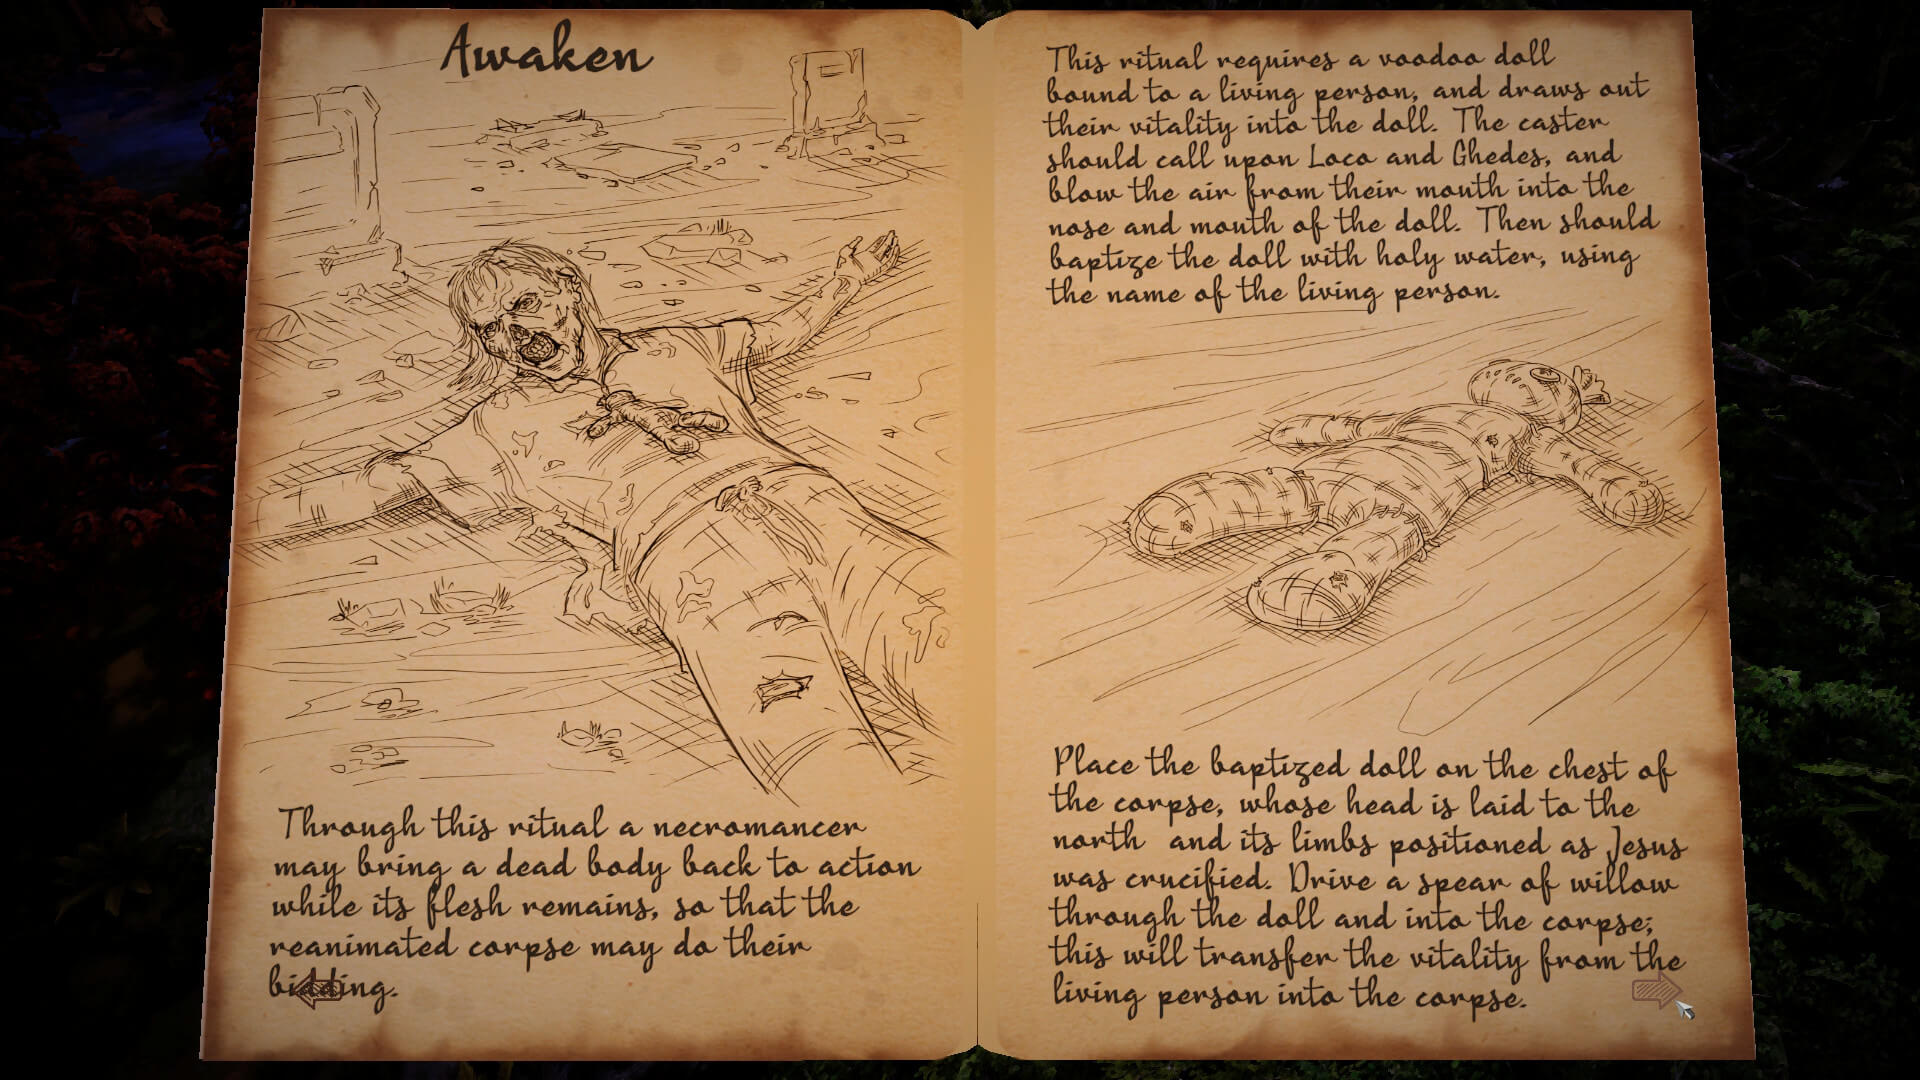 Awaken
Through this ritual a necromancer
may bring a dead body back to action
while its flesh remains, so that the
reanimated corpse may do their
bidding.
This ritual requires a voodoo doll
bound to a living person, and draws out
their vitality into the doll. The caster
should call upon Loco and Ghedes, and
blow the air from their mouth into the
nose and mouth of the doll. Then should
baptize the doll with holy water, using
the name of the living person.
Place the baptized doll on the chest of
the corpse, whose head is laid to the
north and its limbs positioned as Jesus
was crucified. Drive a spear of willow
through the doll and into the corpse;
this will transfer the vitality from the
living person into the corpse.